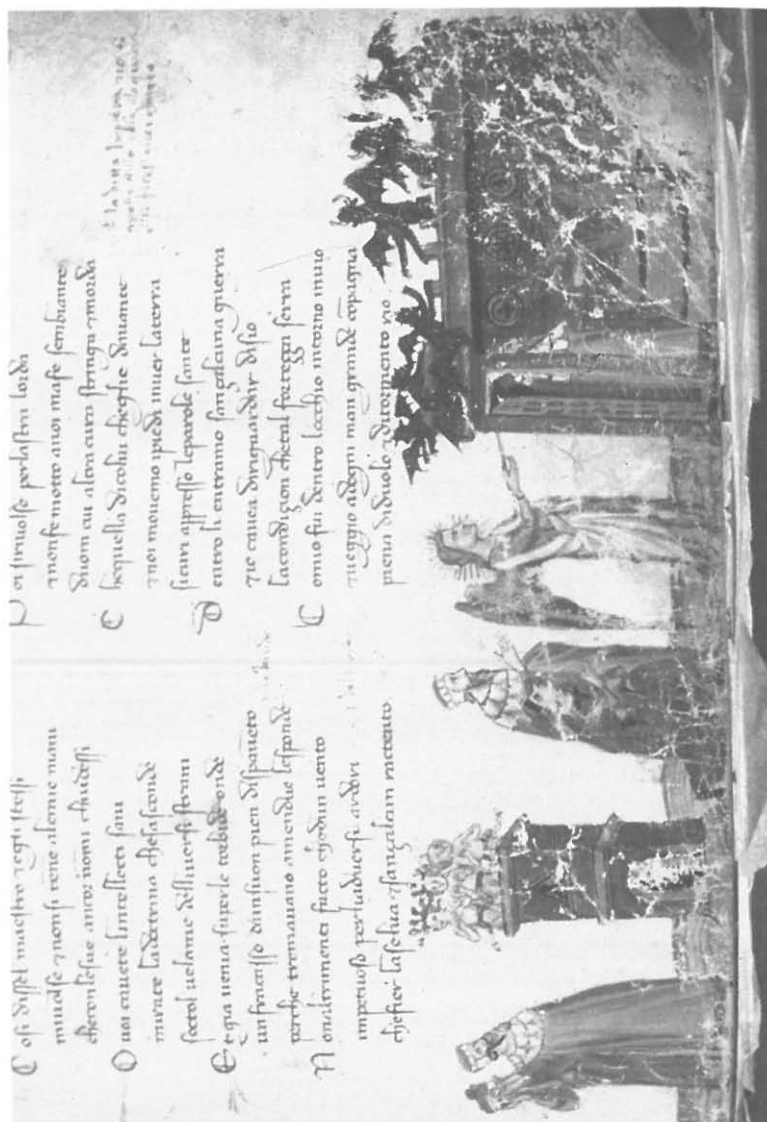 C osi dissel maestro ⁊egli stessi
miuolse ⁊nonsi tene alemie mani
checon lesue ancor nonmi chiudessi
O uoi cauete lintellecti sani
mirate ladoctrina chesasconde
sottol uelame delliuersi strani
Et gia uenia superle torbide onde
un fracasso dunsuon pien dispauento
perche tremauano amendue lesponde
N onaltrimenti facto chedun uento
impetuoso perliaduersi ardori
chefier laselua ⁊sançalcun rattento
P oi siriuolse perlastra lorda
⁊nonfe motto anoi mafe sembiante
duom cui altra cura stringa ⁊morda
C hequella dicolui cheglie dauante
⁊noi mouemo ipiedi inuer laterra
sicuri appresso leparole sante
D entro li entrammo sançalcuna guerra
⁊io cauea diriguardar disio
lacondiçion chetal forteçça serra
C omio fui dentro locchio intorno inuio
⁊ueggio adogni man grande cōpagna
piena diduolo ⁊ditormento rio